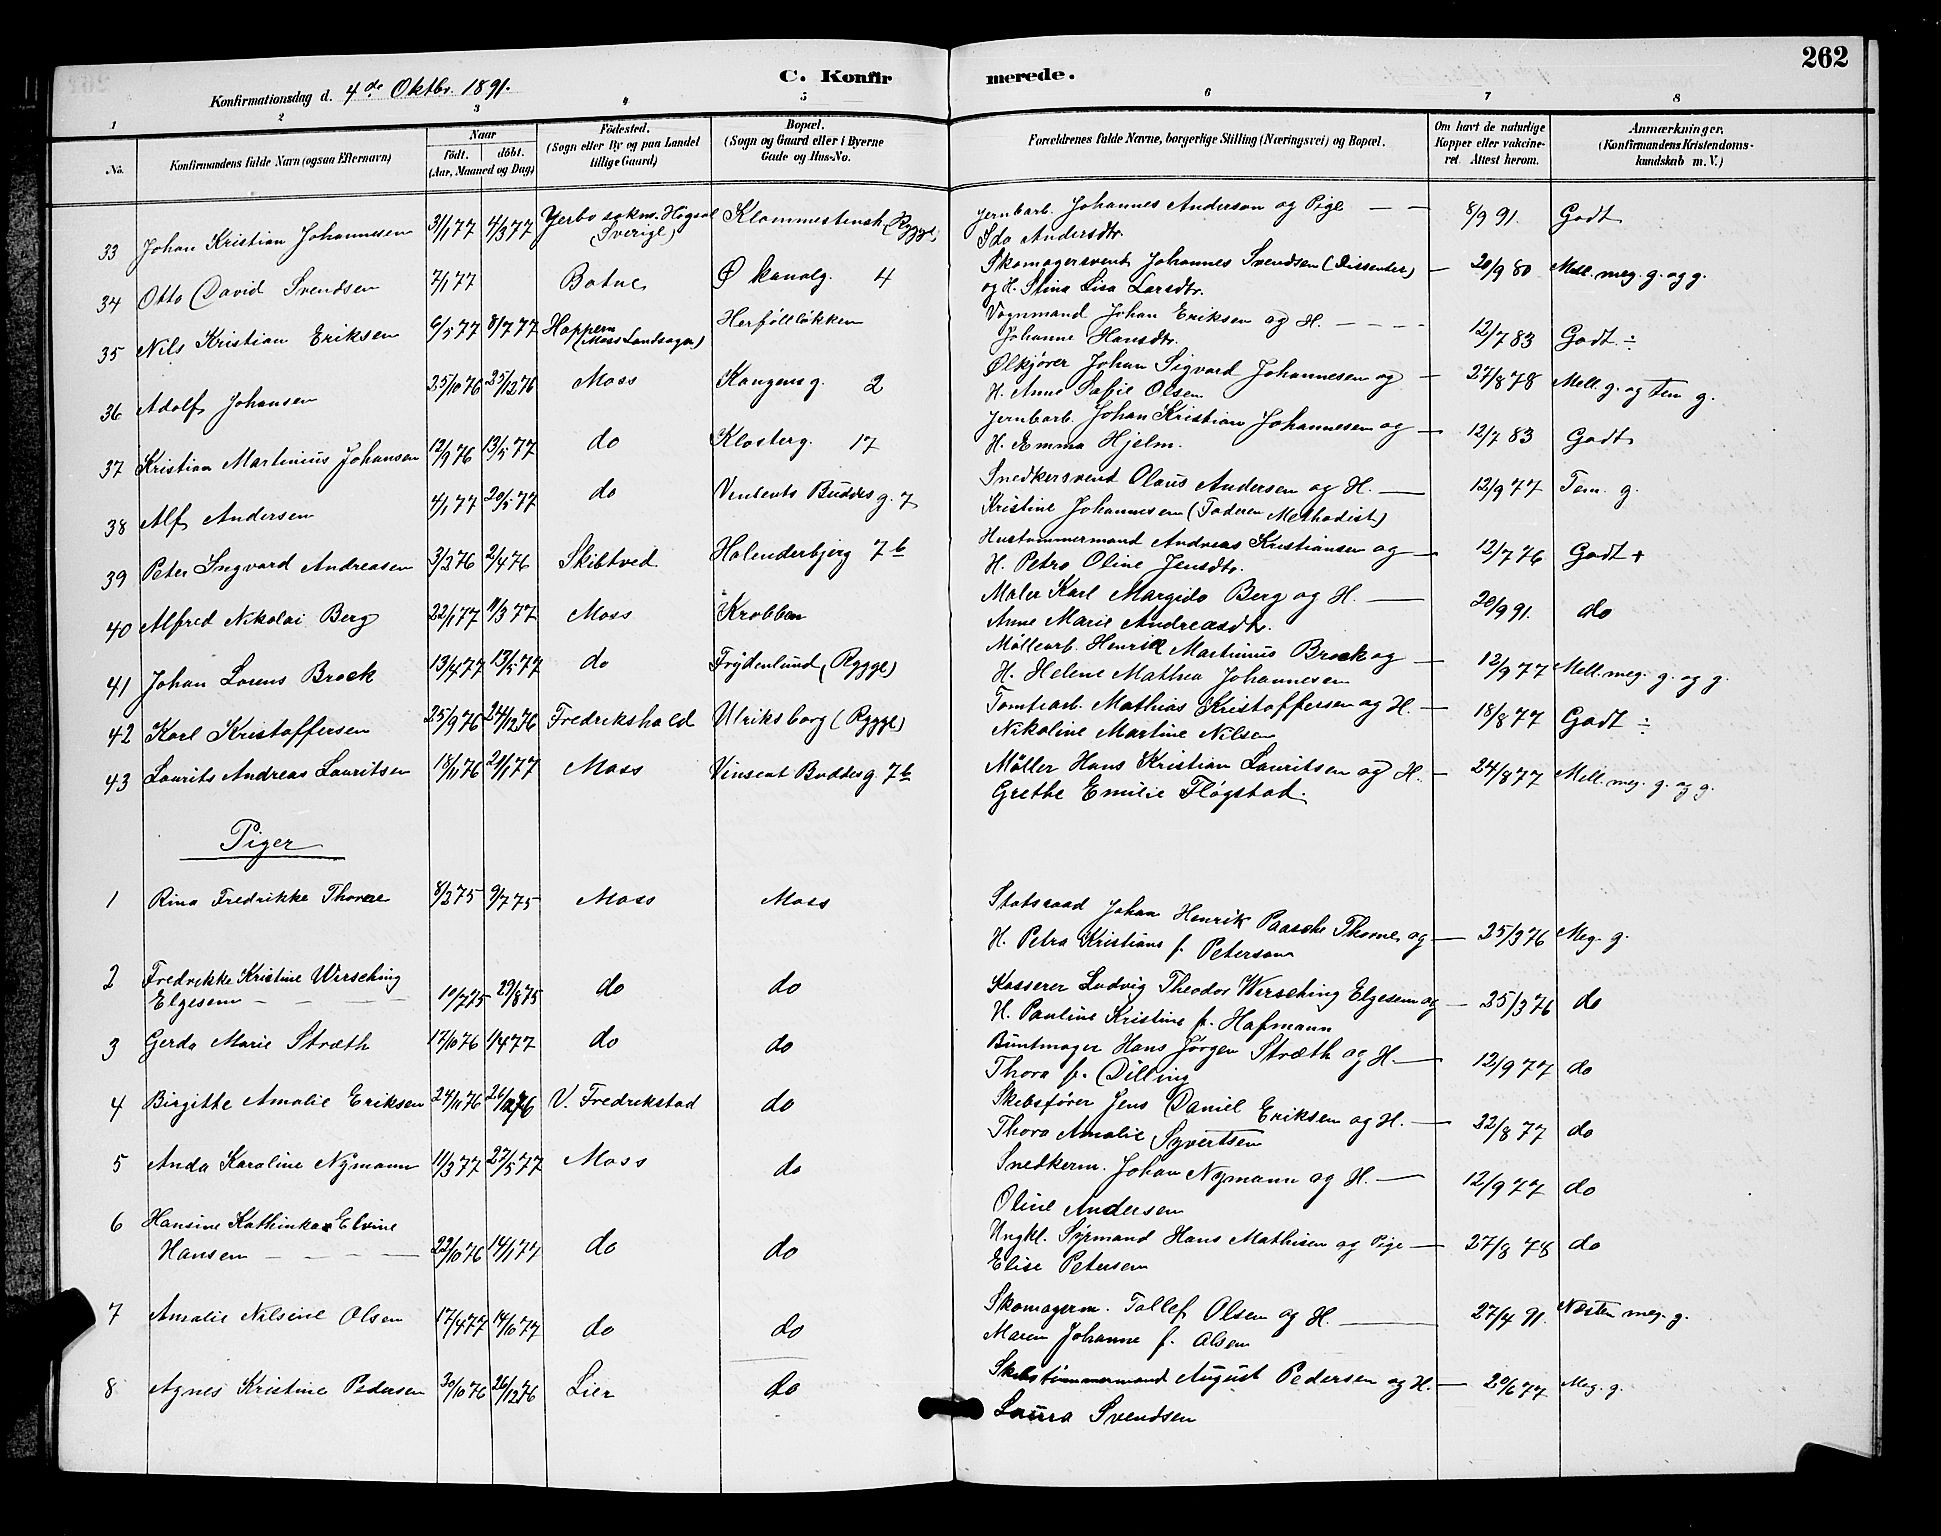 262
C. Konfirmerede.
Konfirmationsdag d. 4de Oktbr. 1891.
1 2 3 4 5 6 7 8
No. Konfirmandens fulde Navn (ogsaa Efternavn) Naar födt. döbt. (Aar, Maaned og Dag) Födested. (Sogn eller By og paa Landet tillige Gaard) Bopæl. (Sogn og Gaard eller i Byerne Gade og Hus-No. Forældrenes fulde Navne, borgerlige Stilling (Næringsvei) og Bopæl. Om havt de naturlige Kopper eller vakcineret. Attest herom. Anmærkninger. (Konfirmandens Kristendomskundskab m. V.)
33 Johan Kristian Johannesen 31/1 77 4/3 77 (Sverige) (Rygge) Jernbarb. Johannes Anderson og Pige — — 8/9 91. Godt
Ida Andersdtr.
34 Otto David Svendsen 7/1 77 Botne Ø kanalg. 4 Skomagersvend Johannes Svendsen (Dissenter) — 20/9 80 Mell. meg. g. og g.
og H. Stina Lisa Larsdtr.
35 Nils Kristian Eriksen 6/5 77 8/7 77 Hoppern (Moss Landsogn) Herføllløkken Vognmand Johan Eriksen og H. — — — 12/7 83 Godt ÷
Johanne Hansdtr.
36 Adolf Johansen 25/10 76 25/12 76 Moss Kongensg. 2 Ølkjører Johan Sigvard Johannesen og — 27/8 78 Mell. g. og tem g.
H. Anne Sofie Olsen
37 Kristian Martinius Johansen 12/9 76 13/5 77 do Klosterg. 17 Jernbarb. Johan Kristian Johannesen og — 12/7 83 Godt
H. Emma Hjelm.
38 Alf Andersen 4/1 77 20/5 77 do Vincents Buddesg. 7 Snedkersvend Olaus Andersen og H. — 12/9 77 Tem. g.
Kristine Johannesen (Faderen Methodist)
39 Peter Ingvard Andreasen 3/2 76 2/4 76 Skibtved. Holenderbjerg 7b Hustømmermand Andreas Kristiansen og — 12/7 76 Godt +
H. Petra Oline Jensdtr.
40 Alfred Nikolai Berg 22/1 77 11/3 77 Moss Krabben Maler Karl Margido Berg og H. — 20/9 91. do
Anne Marie Andreasdtr.
41 Johan Lorens Brock 13/4 77 13/5 77 do Frydenlund (Rygge) Møllearb. Henrik Martinius Brock og — 12/9 77 Mell. meg. g. og g.
H. Helene Mathea Johannesen
42 Karl Kristoffersen 25/9 76 24/12 76 Fredrikshald Ulriksborg (Rygge) Tomtearb. Mathias Kristoffersen og H. — 18/8 77 Godt ÷
Nikoline Martine Nilsen
43 Laurits Andreas Lauritsen 18/11 76 21/1 77 Moss Vinsent Buddesg. 7b Møller Hans Kristian Lauritsen og H. — 24/8 77 Mell. meg. g. og g.
Grethe Emilie Fløgstad.
Piger
1 Rina Fredrikke Thorne 8/2 75 9/7 75 Moss Moss Statsraad Johan Henrik Paasche Thorne og — 25/3 76 Meg. g.
H. Petra Kristiane f. Peterson
2 Fredrikke Kristine Wersching
Elgesem — — — 10/7 75 29/8 75 do do Kasserer Ludvig Theodor Wersching Elgesem og — 25/3 76 do
H. Pauline Kristine f. Hafmann
3 Gerda Marie Stræth 17/10 76 1/4 77 do do Buntmager Hans Jørgen Stræth og H. — 12/9 77 do
Thora f. Dilling
4 Birgitte Amalie Eriksen 24/11 76 26/12 76 V. Fredrikstad do Skibsfører Jens Daniel Eriksen og H. — 22/8 77 do
Thora Amalie Syvertsen
5 Anda Karoline Nymann 11/3 77 27/5 77 Moss do Snedkerm. Johan Nymann og H. — 12/9 77 do
Oline Andersen
6 Hansine Kathinka Elvine
Hansen — — — 22/10 76 14/1 77 do do Ungkl. Sømand Hans Mathisen og Pige — 27/8 78 do
Elise Petersen
7 Amalie Nilsine Olsen 17/4 77 14/10 77 do do Skomagerm. Tollef Olsen og H. — 27/4 91. Næsten meg. g.
Maren Johanne f. Olsen
8 Agnes Kristine Pedersen 30/10 76 26/12 76 Lier do Skibstømmermand August Pedersen og H. — 20/6 77 Meg. g.
Laura Svendsen